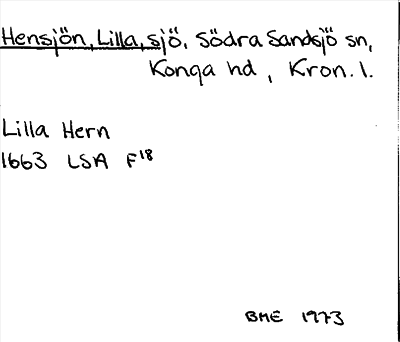 Hensjön, Lilla, sjö. Södra Sandsjö sn,
Konga hd, Kron. l.
Lilla Hern
1663 LSA F18
BME 1973